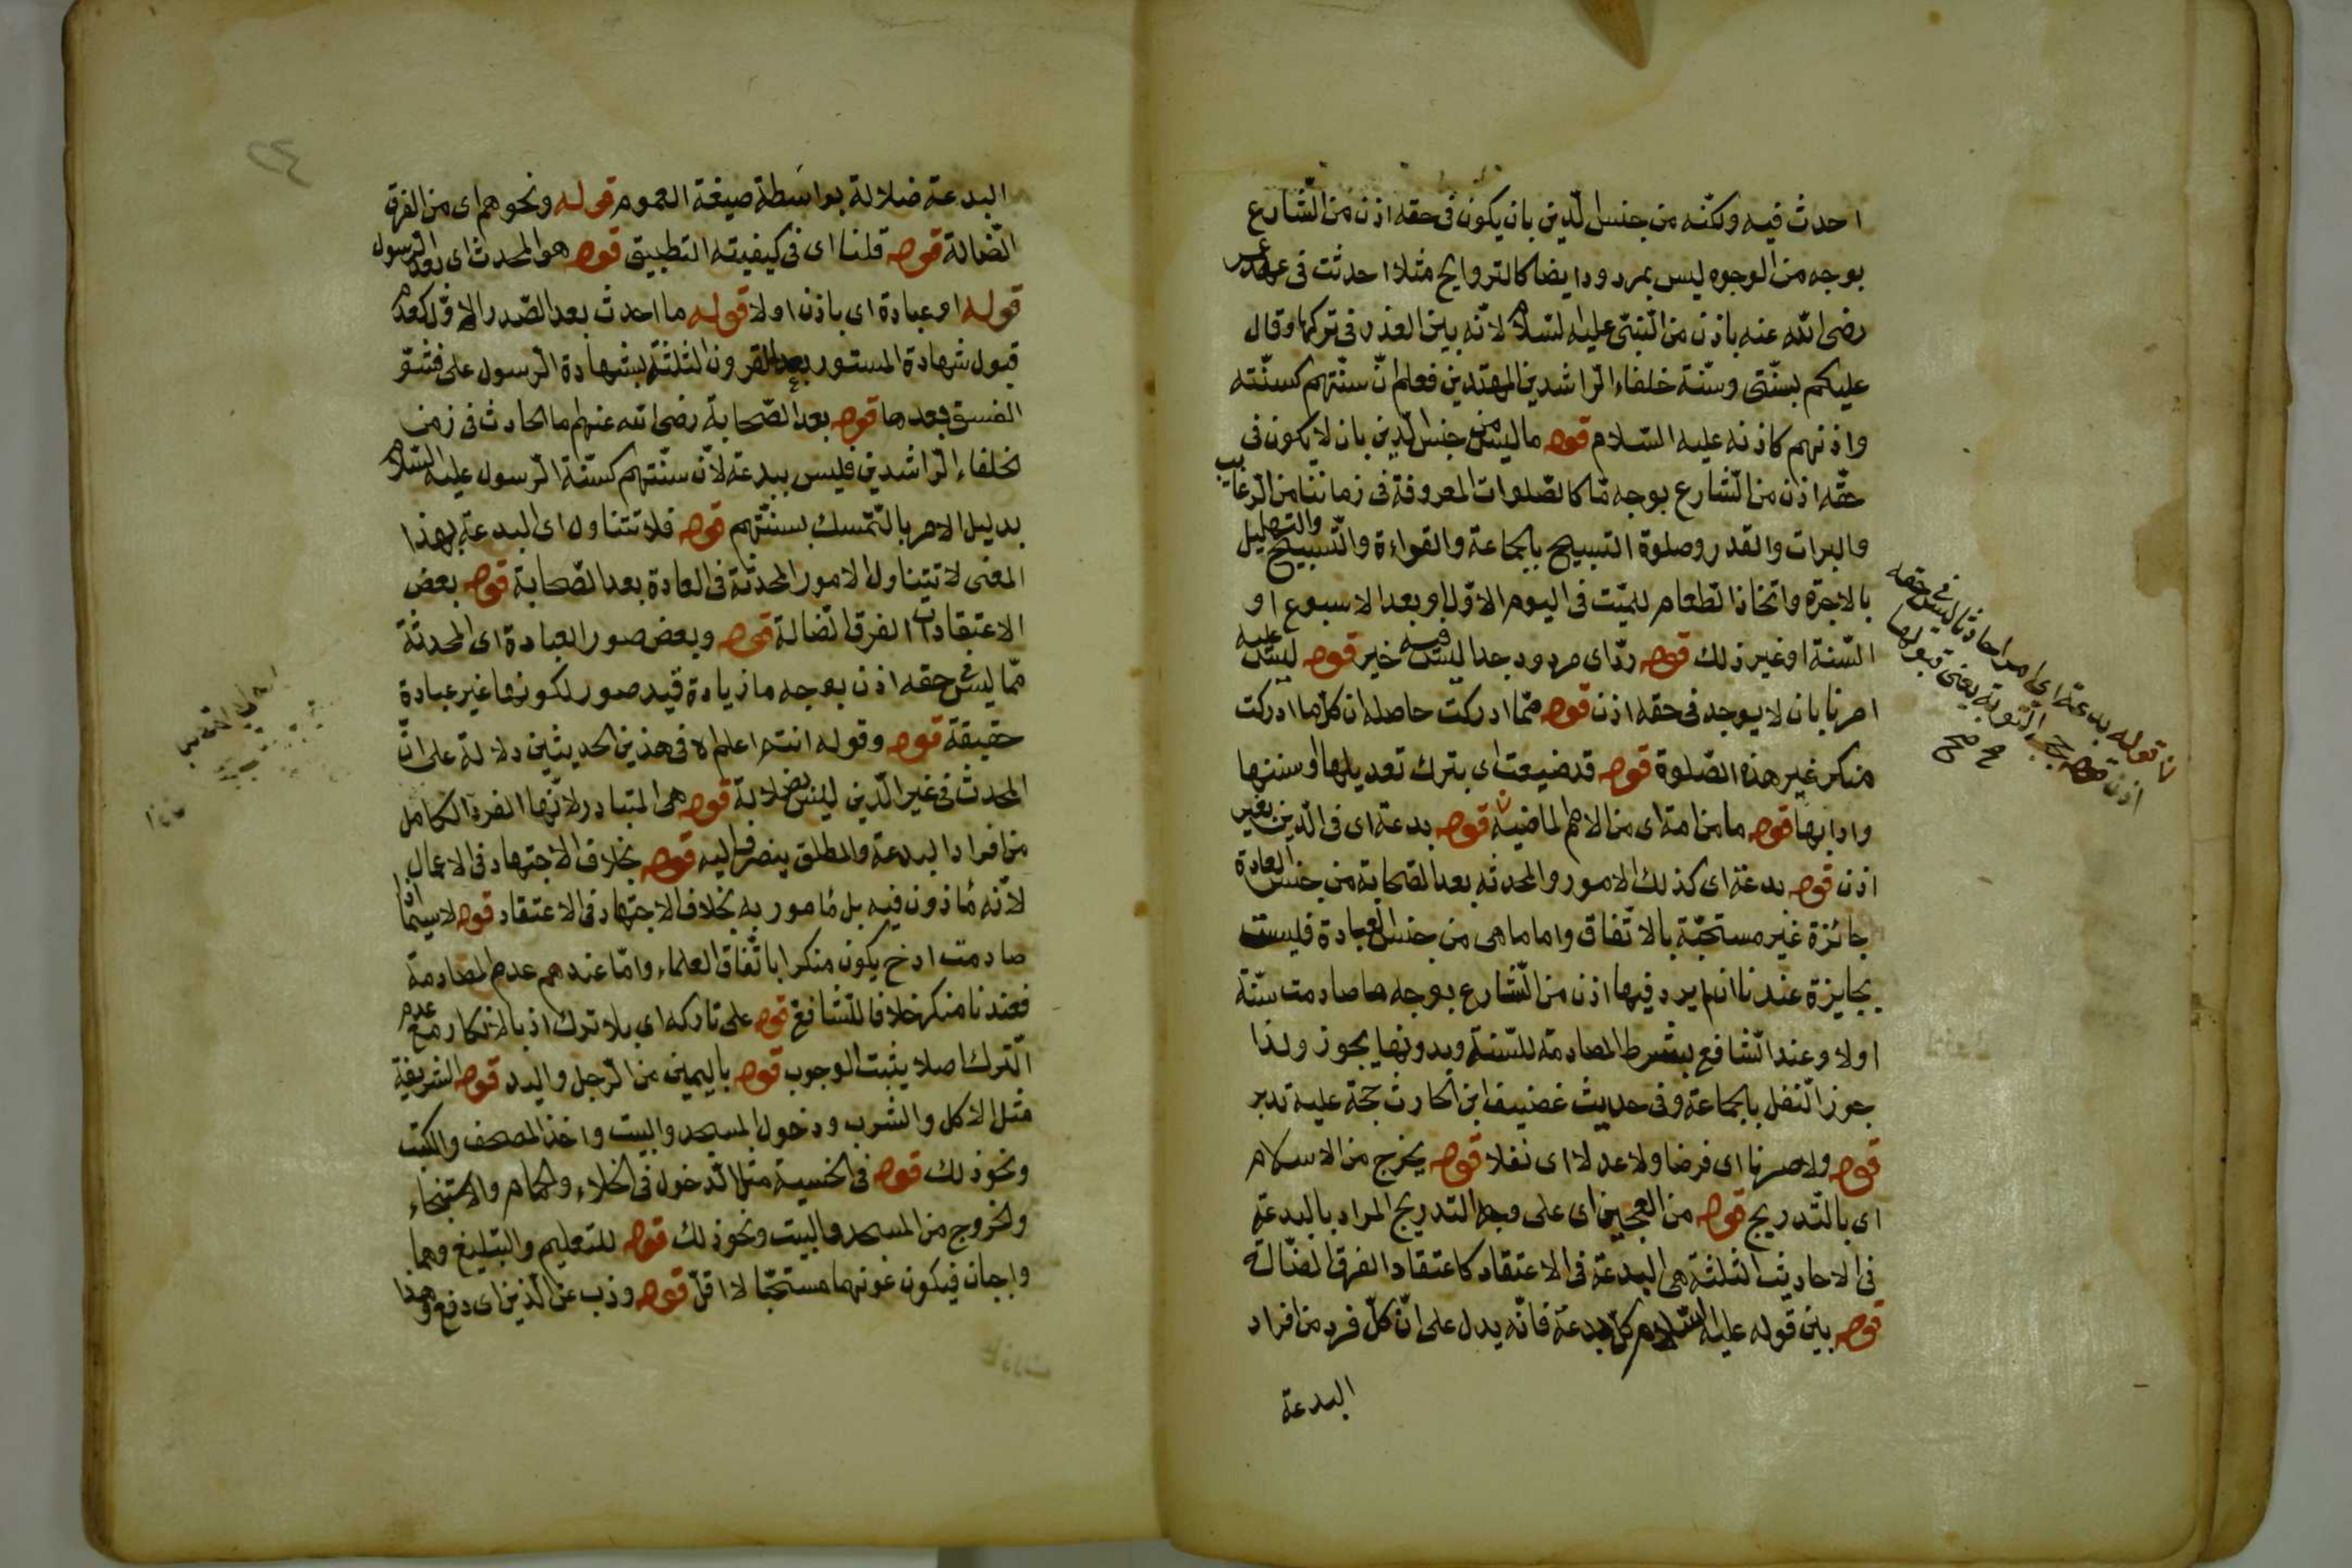 احدث فيه ولكنه من جنس الدين بان يكون فى حقه اذن من الشارع
بوجه من الوجوه ليس بمردود ايضا كالتراويح مثلا احدثت فى عهد عمر
رضى الله عنه باذن من النبى عليه السلام لانه بين العذر فى تركها وقال
عليكم بسنتى وسنة خلفاء الراشدين المهتدين فعلم ان سنتهم كسنته
واذنهم كاذنه عليه السلام قوله ما ليس من جنس الدين بان لا يكون فى
حقه اذن من الشارع بوجه ما كالصلوات المعروفة فى زماننا من الرغايب
والبرات والقدر وصلوة التسبيح بالجماعة والقراءة والتسبيح والتهليل
بالاجرة واتخاذ الطعام للميت فى اليوم الاول او بعد الاسبوع او
السنة او غير ذلك قوله رد اى مردود جدا ليس فيه خير قوله ليس عليه
امرنا بان لا يوجد فى حقه اذن قوله مما ادركت حاصله ان كل ما ادركت
منكر غير هذه الصلوة قوله قد ضيعت اى بترك تعديلها او سننها
وادابها قوله ما من امة اى من الامم الماضية قوله بدعة اى فى الدين بغير
اذن قوله بدعة اى كذلك الامور والمحدثه بعد الصحابة من جنس العادة
جائزة غير مستحبة بالاتفاق واما ما هى من جنس العبادة فليست
بجايزة عندنا ان لم يرد فيها اذن من الشارع بوجه ما صادمت سنة
اولا وعند الشافع بشرط المصادمة للسنة وبدونها يجوز ولذا
جوز النفل بالجماعة وفى حديث غضيف ابن الحارث حجة عليه تدبر
قوله ولا صرفا اى فرضا ولا عدلا اى نفلا قوله يخرج من الاسلام
اى بالتدريج قوله من العجين اى على وجه التدريج المراد بالبدعة
فى الاحاديث الثلثة هى البدعة فى الاعتقاد كاعتقاد الفرق الضالة
قوله بين قوله عليه السلام كل بدعة فانه يدل على ان كل فرد من افراد
البدعة
قوله بدعة اى امدا حادثا ليس فى حقه
اذن قوله حجب التوبة يعنى قبولها
صح
البدعة ضلالة بواسطة صيغة العموم قوله ونحوهم اى من الفرق
الضالة قوله قلنا اى فى كيفيته التطبيق قوله هو المحدث اى بعد الرسول
قوله او عبادة اى باذن اولا قوله ما احدث بعد الصدر الاول كعدم
قبول شهادة المستور بعد القرون الثلثة بشهادة الرسول على فشو
الفسق بعدها قوله بعد الصحابة رضى الله عنهم ما الحادث فى زمن
لخلفاء الراشدين فليس ببدعة لان سنتهم كسنة الرسول عليه السلام
بدليل الامر بالتمسك بسنتهم قوله فلا تتناول اى البدعة بهذا
المعنى لا تتناول الامور المحدثة فى العادة بعد الصحابة قوله بعض
الاعتقادات الفرق الضالة قوله وبعض صور العبادة اى المحدثة
مما ليس فى حقه اذن بوجه ما زيادة قيد صور لكونها غير عبادة
حقيقة قوله وقوله انتم اعلم اه فى هذين الحديثين دلالة على ان
المحدث فى غير الدين ليس بضلالة قوله هى المتبادر لانها الفرد الكامل
من افراد البدعة والمطلق ينصرف اليه قوله بخلاف الاجتهاد فى الاعمال
لانه مأذون فيه بل مأمور به بخلاف الاجتهاد فى الاعتقاد قوله لاسيما اذا
صادمت اذ ح يكون منكرا باتفاق العلماء واما عندهم عدم المصادمة
فعندنا منكر خلافا للشافع قوله على تاركه اى بلا ترك اذ بالانكار مع عدم
الترك اصلا يثبت الوجوب قوله باليمين من الرجل واليد قوله الشريفة
مثل الاكل والشرب ودخول المسجد والبيت واخذ المصحف والكتب
ونحو ذلك قوله فى الخسيسة مثل الدخول فى الخلاء والحمام والاستنجاء
والخروج من المسجد والبيت ونحو ذلك قوله للتعليم والتبليغ وهما
واجبان فيكون عونهما مستحبا لا اقل قوله وذب عن الدين اى دفع وهذا